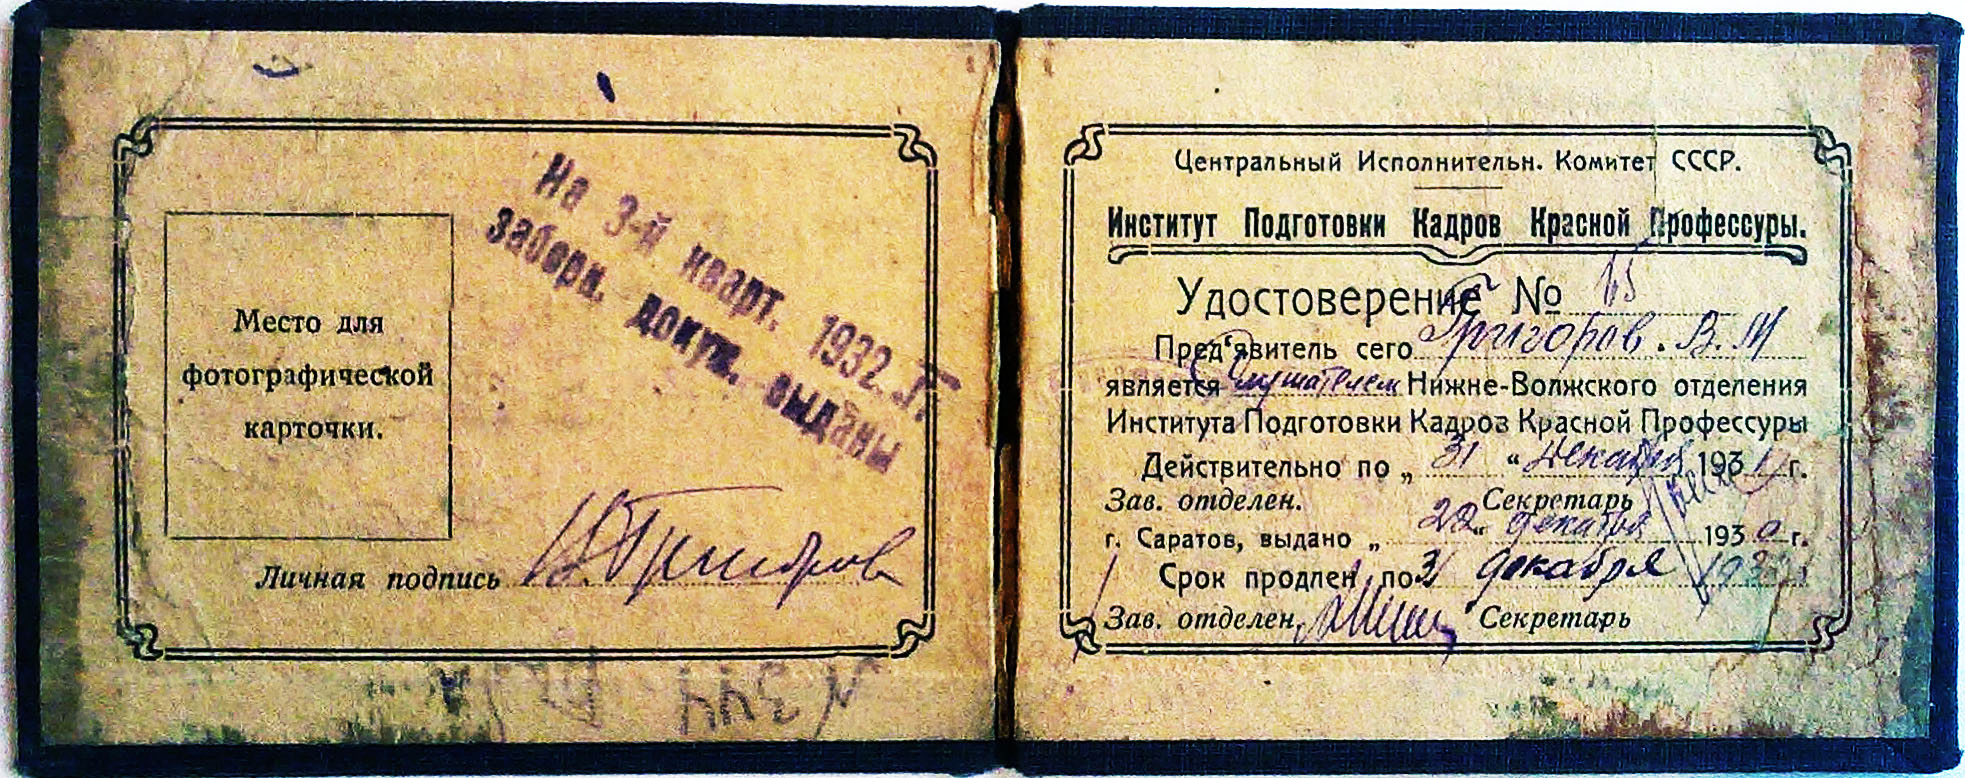 На 3-й кварт. 1932 г.
забори. докум. выданы
Место для
фотографической
карточки.
Личная подпись В. Григоров
Центральный Исполнительн. Комитет СССР.
Институт Подготовки Кадров Красной Профессуры.
Удостоверение № 15
Пред'явитель сего Григоров. В. М
является Слушателем Нижне-Волжского отделения
Института Подготовки Кадров Красной Профессуры
Действительно по „31“ декабря 1931 г.
Зав. отделен. Секретарь
г. Саратов, выдано „20“ декабря 1930 г.
Срок продлен по 31 декабря 1932
Зав. отделен. Секретарь